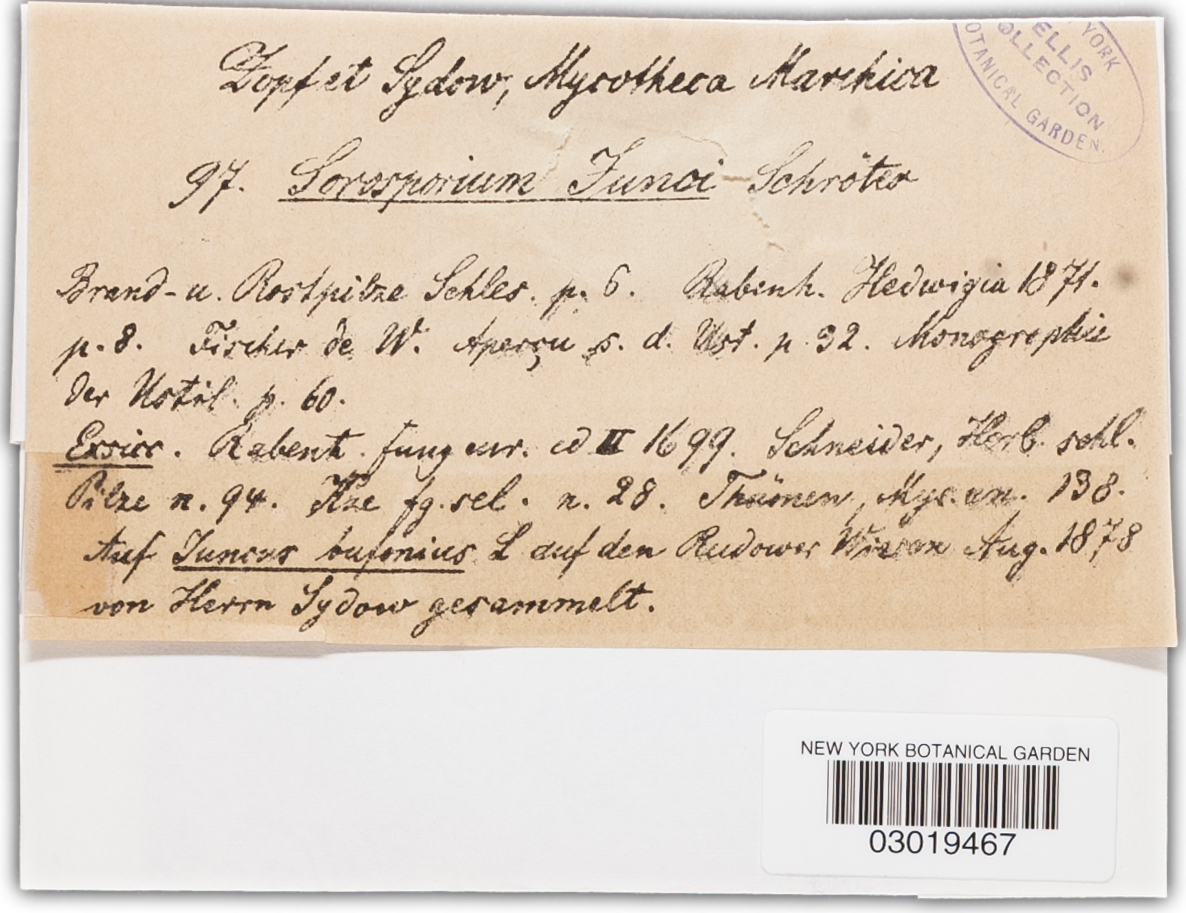 Zopf et Sydow, Mycotheca Marchica
YORK
ELLIS
COLLECTION
BOTANICAL GARDEN.
97. Sorosporium Junci Schröter
Brand- u. Rostpilze Schles. p. 6. Rabenh. Hedwigia 1871.
p. 8. Fischer de W. Aperçu s. d. Ust. p. 32. Monographie
der Ustil. p. 60.
Exsicc. Rabenh. fung eur. ed II 1699. Schneider, Herb. schl.
Pilze n. 94. Kze fg. sel. n. 28. Thümen, Myc. un. 138.
Auf Juncus bufonius L auf den Rudower Wiesen Aug. 1878
von Herrn Sydow gesammelt.
NEW YORK BOTANICAL GARDEN
03019467